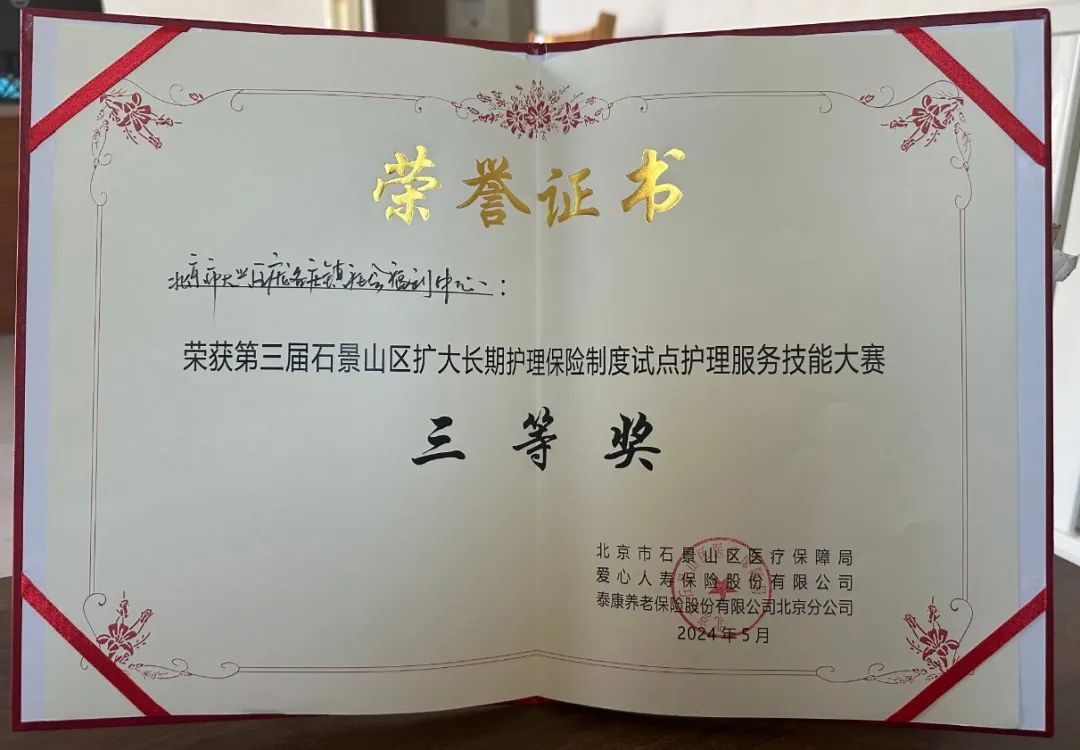 荣誉证书
北京市大兴区庞各庄镇社会福利中心：
荣获第三届石景山区扩大长期护理保险制度试点护理服务技能大赛
三等奖
北京市石景山区医疗保障局
爱心人寿保险股份有限公司
泰康养老保险股份有限公司北京分公司
2024年5月